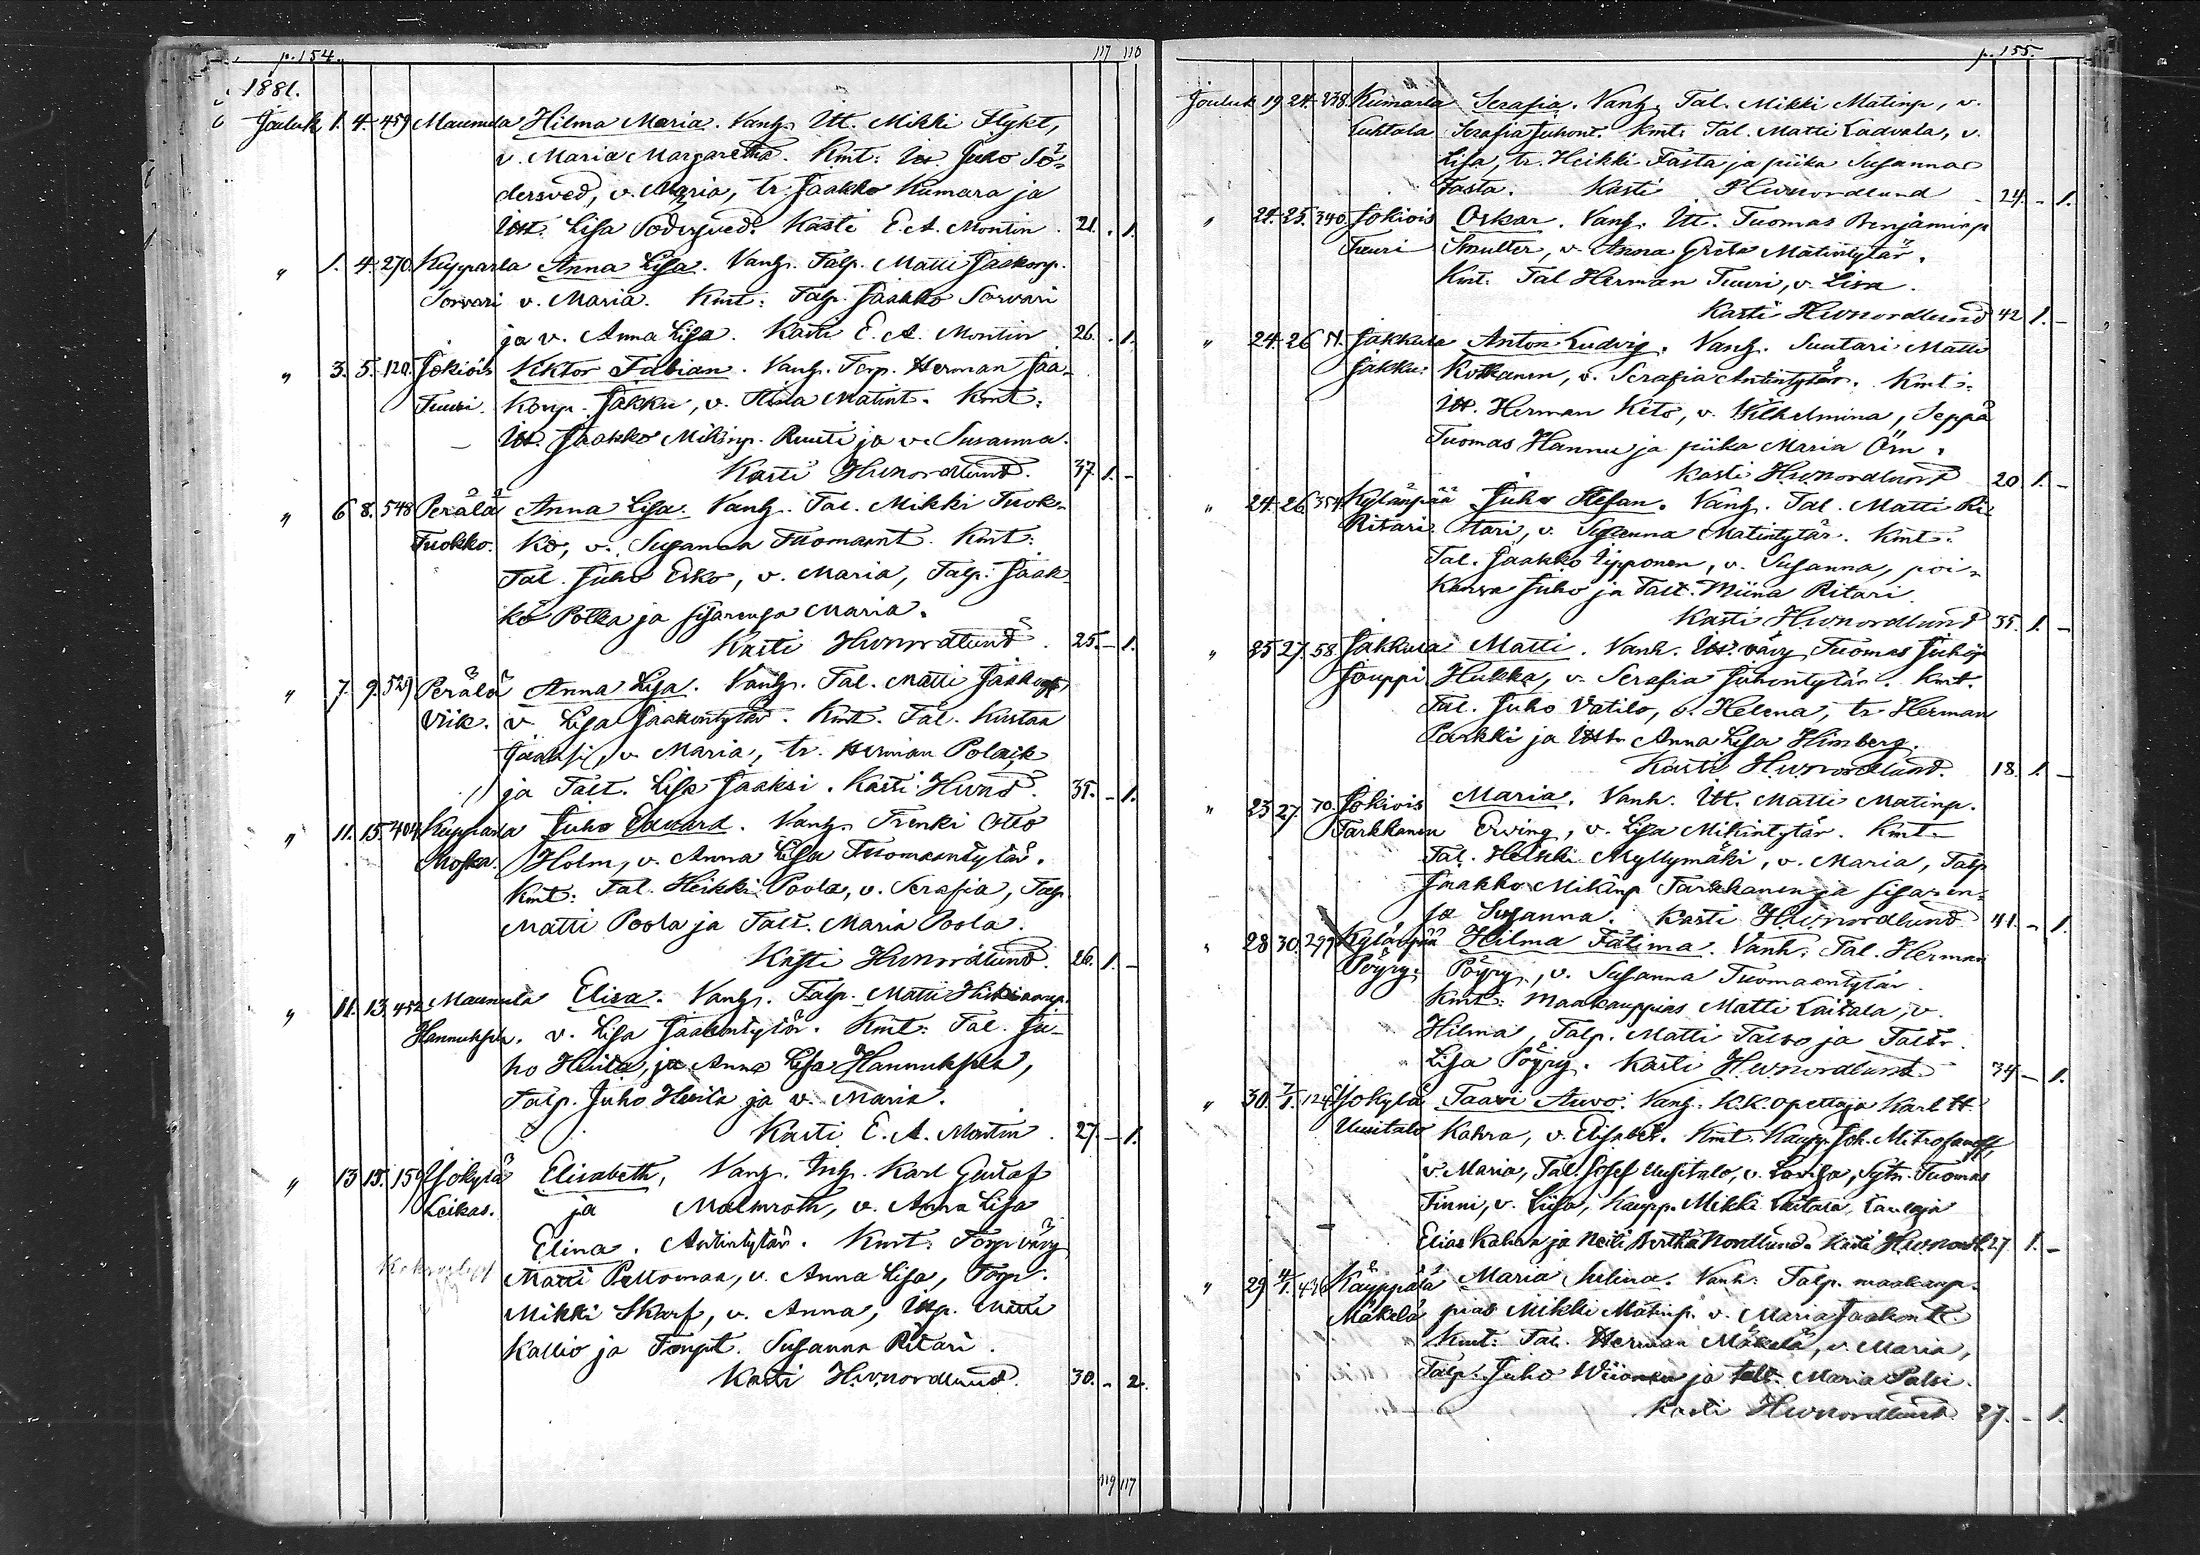 p. 154. 117 110
1881.
Jouluk 1. 4. 459 Maunula Hilma Maria. Vanh. Itt. Mikki Flykt,
v. Maria Margaretha. Kmt: Itt. Juho Sö-
dersved, v. Maria, tr. Jaakko Kumara ja
Ittt. Lisa Södersved. Kasti E. A. Montin. 21. . 1.
" 1. 4. 270. Kupparla Anna Lisa. Vanh. Talp. Matti Jaakonp.
Sorvari v. Maria. Kmt: Talp. Jaakko Sorvari
ja v. Anna Lisa. Kasti E. A. Montin 26. . 1.
" 3. 5. 120. Jokiois Viktor Fabian. Vanh. Torp. Herman Jaa-
Tuuri. konp. Jakku, v. Stina Matint. Kmt:
Itt. Jaakko Mikinp. Ruuti ja v. Susanna.
Kasti HWnordlund. 37. 1. -
" 6 8. 548 Perälä Anna Lisa. Vanh. Tal. Mikki Tuok-
Tuokko. ko, v. Susanna Tuomaant. Kmt:
Tal. Juho Esko, v. Maria, Talp. Jaak-
ko Polka ja sisarensa Maria.
Kasti HWnordlund. 25. - 1.
" 7. 9. 529 Perälä Anna Lisa. Vanh. Tal. Matti Jaakonp,
Viik. v. Lisa Jaakontytär. Kmt. Tal. Kustaa
Jaaksi, v. Maria, tr. Herman Polaik
ja Talt. Lisa Jaaksi. Kasti HWnd. 31. - 1.
" 11. 15. 404 Kupparla Juho Edvard. Vanh. Trenki Otto
Moska. Holm, v. Anna Lisa Tuomaantytär.
Kmt: Tal. Heikki Poola, v. Serafia, Talp.
Matti Poola ja Talt. Maria Poola.
Kasti HWnordlund. 26. 1. -
" 11. 13. 452 Maunula Elisa. Vanh. Talp. Matti
Hannuksela. v. Lisa Jaakontytär. Kmt: Tal. Ju-
ho Heila, ja Anna Lisa Hannuksela,
Talp. Juho Heila ja v. Maria.
Kasti E. A. Montin. 27. - 1.
" 13 15. 159 Yjokylä Elisabeth, Vanh. Inh. Karl Gustaf
Leikas. ja Malmroth, v. Anna Lisa
Elina. Antintytär. Kmt: Torp.vävy
Matti Peltomaa, v. Anna Lisa, Torp.
Mikki Skarf, v. Anna, Itp. Matti
Kallio ja Torpt. Susanna Ritari.
Kasti HWnordlund. 30. - 2.
119 117
p. 155.
Jouluk 19 24. 238. Kumarla Serafia. Vanh. Tal. Mikki Matinp, v.
Luhtala Serafia Juhont. Kmt: Tal. Matti Ladvala, v.
Lisa, tr. Heikki Fasta ja piika Susanna
Fasta. Kasti HWnordlund 24. - 1.
" 21. 25. 340. Jokiois Oskar. Vanh. Itt. Tuomas Benjaminp
Tuuri Smulter, v. Anna Greta Matintytär.
Kmt. Tal Herman Tuuri, v. Lisa.
Kasti HWnordlund 42 1. -
" 24. 26 51. Jakkula Anton Ludvig. Vanh. Suutari Matti
Jakku: Kotkanen, v. Serafia Antintytär. Kmt:
Itt. Herman Keto, v. Wilhelmina, Seppä
Tuomas Hannu ja piika Maria Örn.
Kasti HWnordlund 20 1. -
" 24. 26 354 Kylänpää Juho Stefan. Vanh. Tal. Matti Ri-
Ritari tari, v. Susanna Matintytär. Kmt:
Tal. Jaakko Lipponen, v. Susanna, poi-
kansa Juho ja Talt. Miina Ritari.
Kasti HWnordlund 35. 1. -
" 25 27. 58. Jakkula Matti. Vanh. Itt. vävy Tuomas Juhop
Jouppi Hukka, v. Serafia Juhontytär. Kmt.
Tal. Juho Vatilo, v. Helena, tr. Herman
Parkki ja Ittr. Anna Lisa Himberg.
Kasti HWnordlund. 18. 1. -
" 23 27. 70. Jokiois Maria. Vanh. Itt. Matti Matinp.
Tarkkanen Erving, v. Lisa Mikintytär. Kmt.
Tal. Heikki Myllymäki, v. Maria, Talp.
Jaakko Mikinp Tarkkanen ja sisaren-
sa Susanna. Kasti HWnordlund 41. - 1.
" 28 30. 299 Kylänpää Hilma Fatima. Vanh. Tal. Herman
Pöyry. Pöyry, v. Susanna Tuomaantytär.
Kmt: maakauppias Matti Laitala, v.
Hilma, Talp. Matti Talso ja Taltr.
Lisa Pöyry. Kasti HWnordlund. 34 - 1.
" 30. 7/1. 124 Yjokylä Taavi Arvo. Vanh. K.K. opettaja Karl H.
Uusitalo Kahra, v. Elisabet. Kmt. Kaupp. Joh. Mitrofanoff,
v. Maria, Tal. Josef Uusitalo, v. Lovisa, Sytn. Tuomas
Finni, v. Liisa, Kaupp. Mikki Laitala, Laulaja
Elias Kahra ja Neiti Bertha Nordlund. Kasti HWnordl. 27 1. -
" 29 4/1. 436 Käyppälä Maria Milina. Vanh. Talp. maakaup-
Mäkelä pias Mikki Matinp. v. Maria Jaakont.
Kmt: Tal. Herman Mäkelä, v. Maria,
Talp. Juho Wiionen ja talt. Maria Palsi.
Kasti HWnordlund 27. - 1.